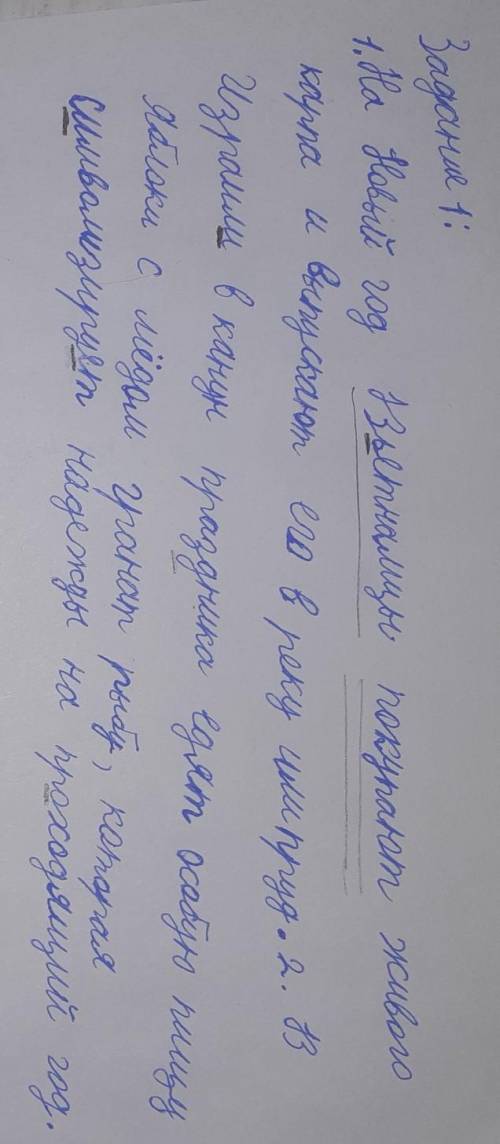 Задание 1:
1. На Новый год Вьетнамцы покупают живого
карпа и выпускают его в реку или пруд. 2. В
Израили в канун праздника едят особую пищу
яблоки с мёдом гранат рыбу, которая
символизирует надежды на проходящий год.